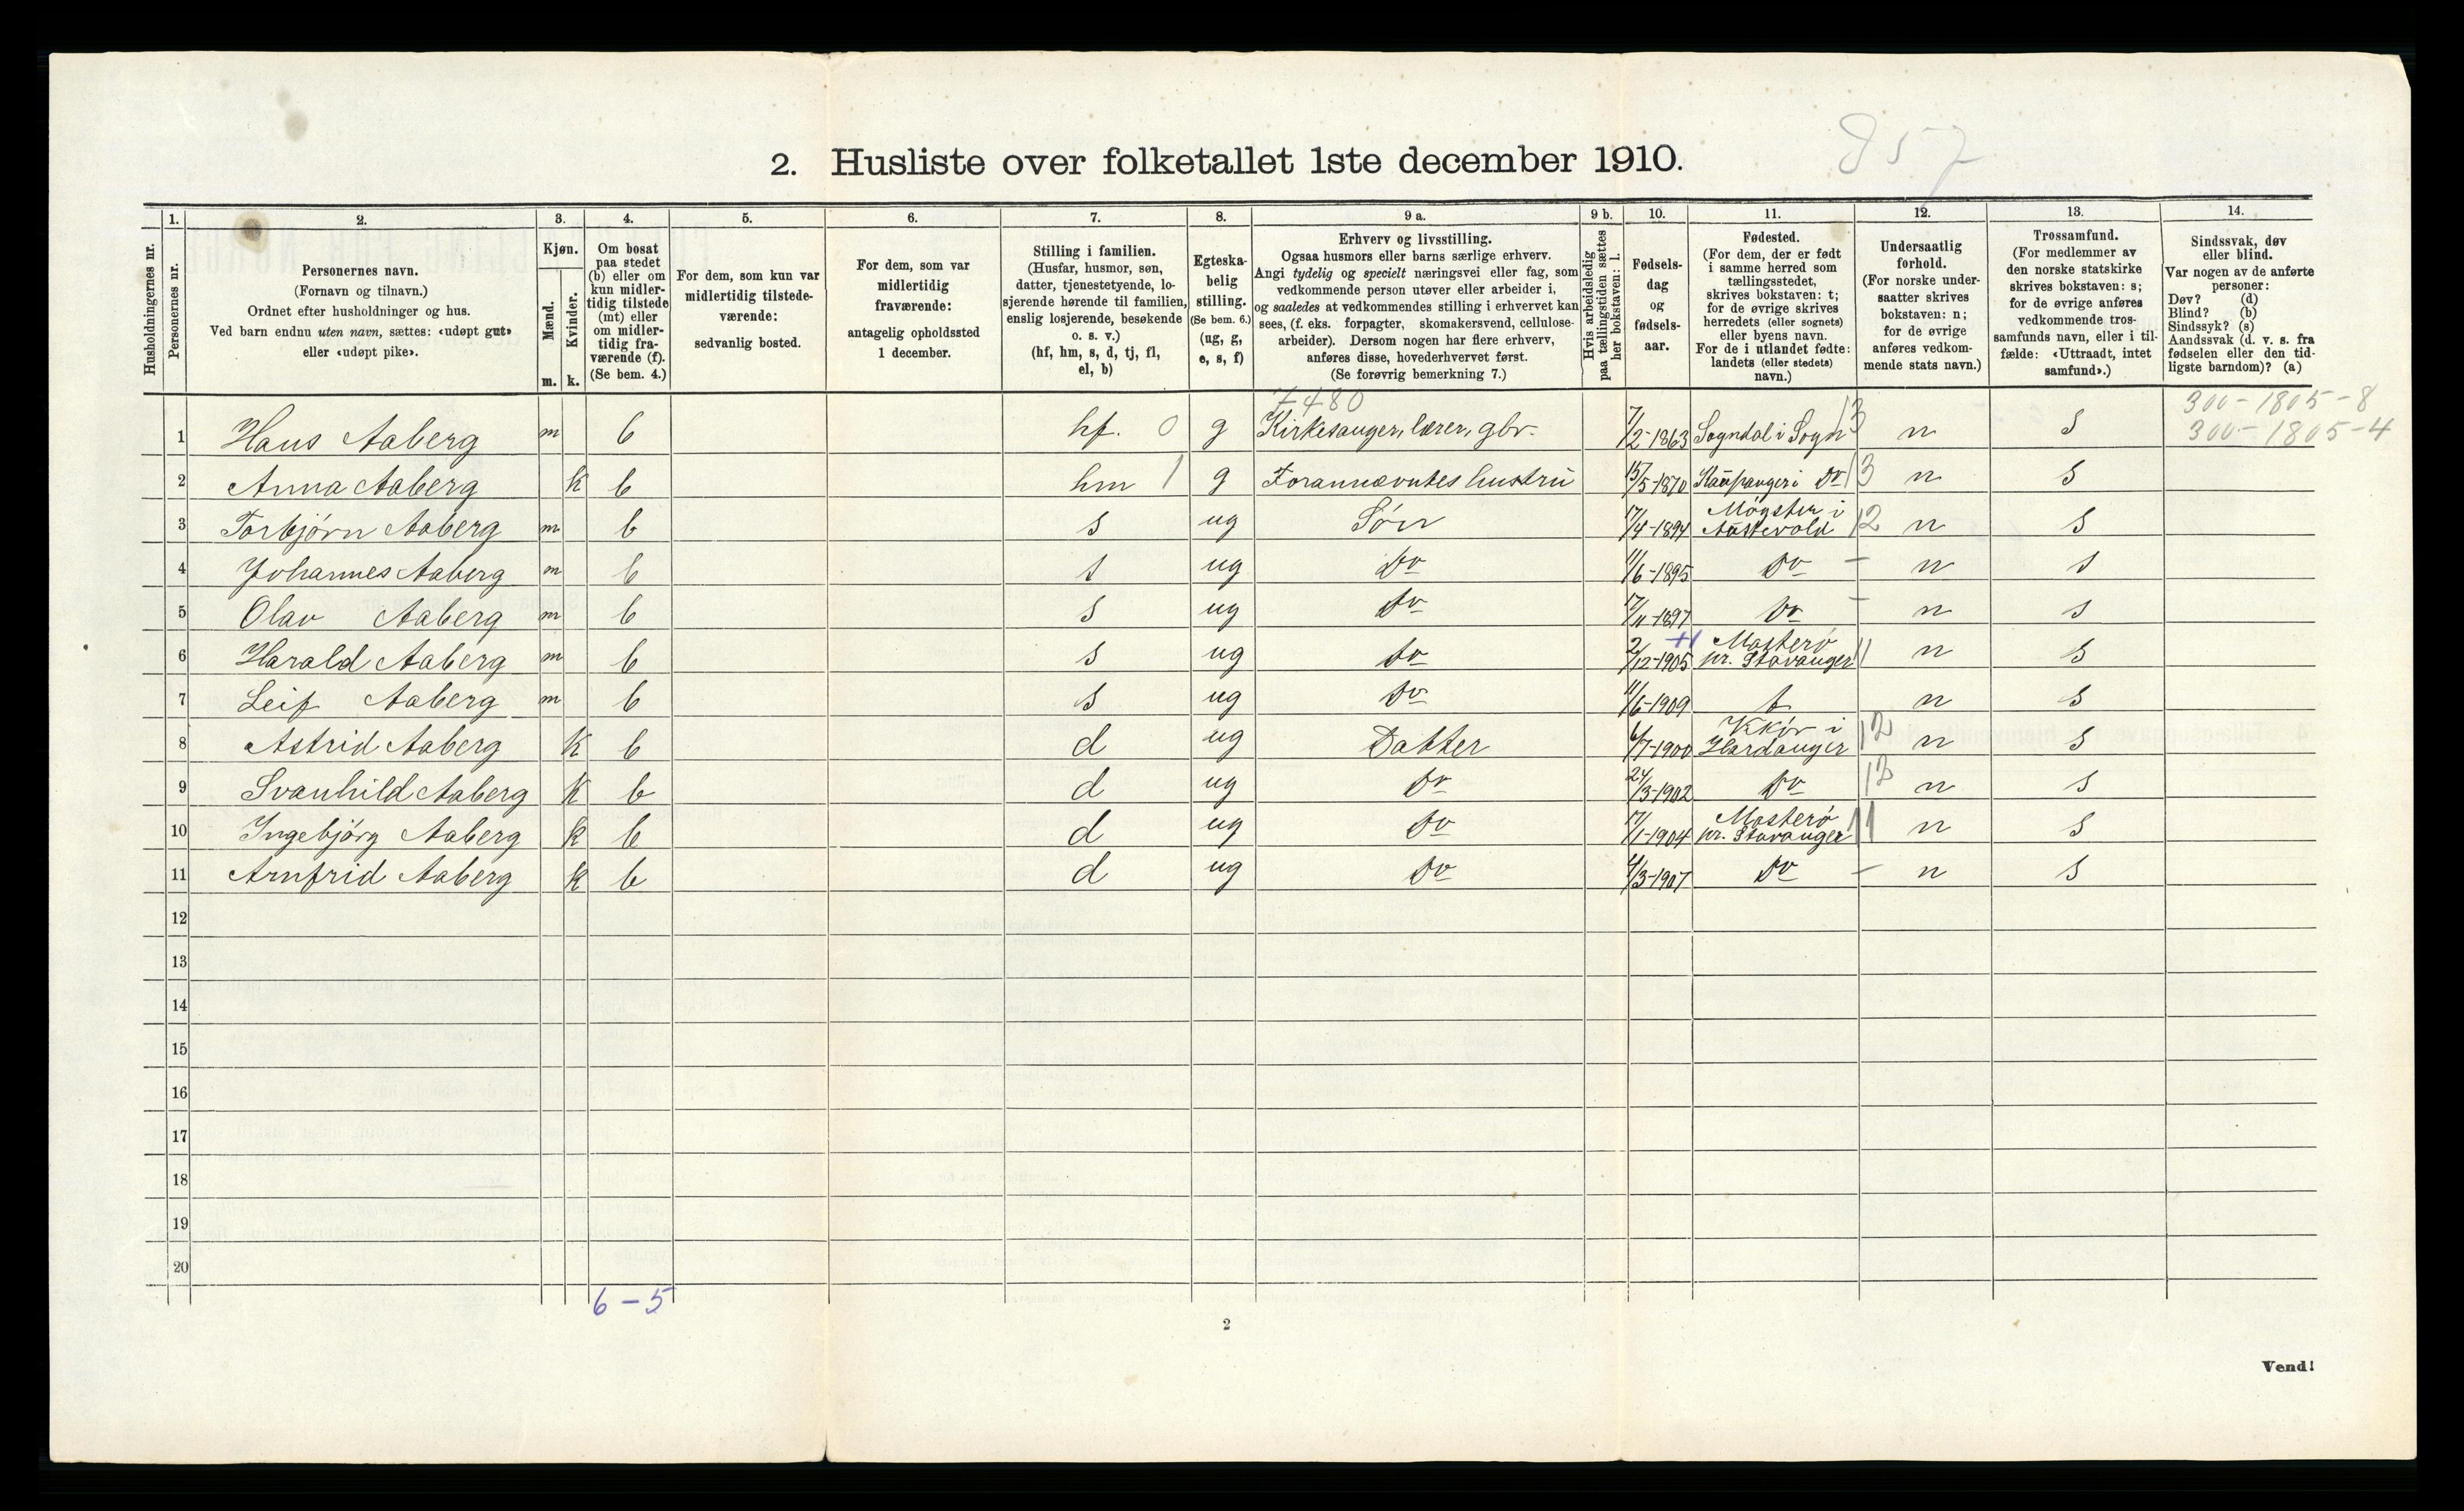 857
2. Husliste over folketallet 1ste december 1910.
Husholdningernes nr.
1. Personernes nr.
2. Personernes navn. (Fornavn og tilnavn.) Ordnet efter husholdninger og hus. Ved barn endnu uten navn, sættes: «udøpt gut» eller «udøpt pike».
3. Kjøn. Mænd. m. Kvinder. k.
4. Om bosat paa stedet (b) eller om kun midlertidig tilstede (mt) eller om midlertidig fraværende (f). (Se bem. 4.)
5. For dem, som kun var midlertidig tilstedeværende: sedvanlig bosted.
6. For dem, som var midlertidig fraværende: antagelig opholdssted 1 december.
7. Stilling i familien. (Husfar, husmor, søn, datter, tjenestetyende, losjerende hørende til familien, enslig losjerende, besøkende o. s. v.) (hf, hm, s, d, tj, fl, el, b)
8. Egteskabelig stilling. (Se bem. 6.) (ug, g, e, s, f)
9 a. Erhverv og livsstilling. Ogsaa husmors eller barns særlige erhverv. Angi tydelig og specielt næringsvei eller fag, som vedkommende person utøver eller arbeider i, og saaledes at vedkommendes stilling i erhvervet kan sees, (f. eks. forpagter, skomakersvend, cellulosearbeider). Dersom nogen har flere erhverv, anføres disse, hovederhvervet først. (Se forøvrig bemerkning 7.)
9 b. Hvis arbeidsledig paa tællingstiden sættes her bokstaven: l.
10. Fødselsdag og fødselsaar.
11. Fødested. (For dem, der er født i samme herred som tællingsstedet, skrives bokstaven: t; for de øvrige skrives herredets (eller sognets) eller byens navn. For de i utlandet fødte: landets (eller stedets) navn.)
12. Undersaatlig forhold. (For norske undersaatter skrives bokstaven: n; for de øvrige anføres vedkommende stats navn.)
13. Trossamfund. (For medlemmer av den norske statskirke skrives bokstaven: s; for de øvrige anføres vedkommende trossamfunds navn, eller i tilfælde: «Uttraadt, intet samfund».)
14. Sindssvak, døv eller blind. Var nogen av de anførte personer: Døv? (d) Blind? (b) Sindssyk? (s) Aandssvak (d. v. s. fra fødselen eller den tidligste barndom)? (a)
7480
300-1805-8
1 Hans Aaberg m b hf. 0 g Kirkesanger, lærer, gbr. 7/2-1863 Sogndal i Sogn 13 n s 300-1805-4
2 Anna Aaberg k b hm 1 g Forannævntes hustru 15/5-1870 Kaupanger i Do 13 n s
3 Torbjörn Aaberg m b s ug Sön 17/4-1894 Møgster i Austevold 12 n s
4 Johannes Aaberg m b s ug Do 11/6-1895 Do - n s
5 Olav Aaberg m b s ug Do 17/11-1897 Do - n s
6 Harald Aaberg m b s ug Do 2/12-1905 +1 Mosterø pr. Stavanger 11 n s
7 Leif Aaberg m b s ug Do 11/6-1909 t n s
8 Astrid Aaberg k b d ug Datter 6/7-1900 Vikör i Hardanger 12 n s
9 Svanhild Aaberg k b d ug Do 24/3-1902 Do 12 n s
10 Ingebjörg Aaberg k b d ug Do 17/1-1904 Mosterø pr. Stavanger 11 n s
11 Arnfrid Aaberg k b d ug Do 4/3-1907 Do - n s
12
13
14
15
16
17
18
19
20
6 - 5
2
Vend!